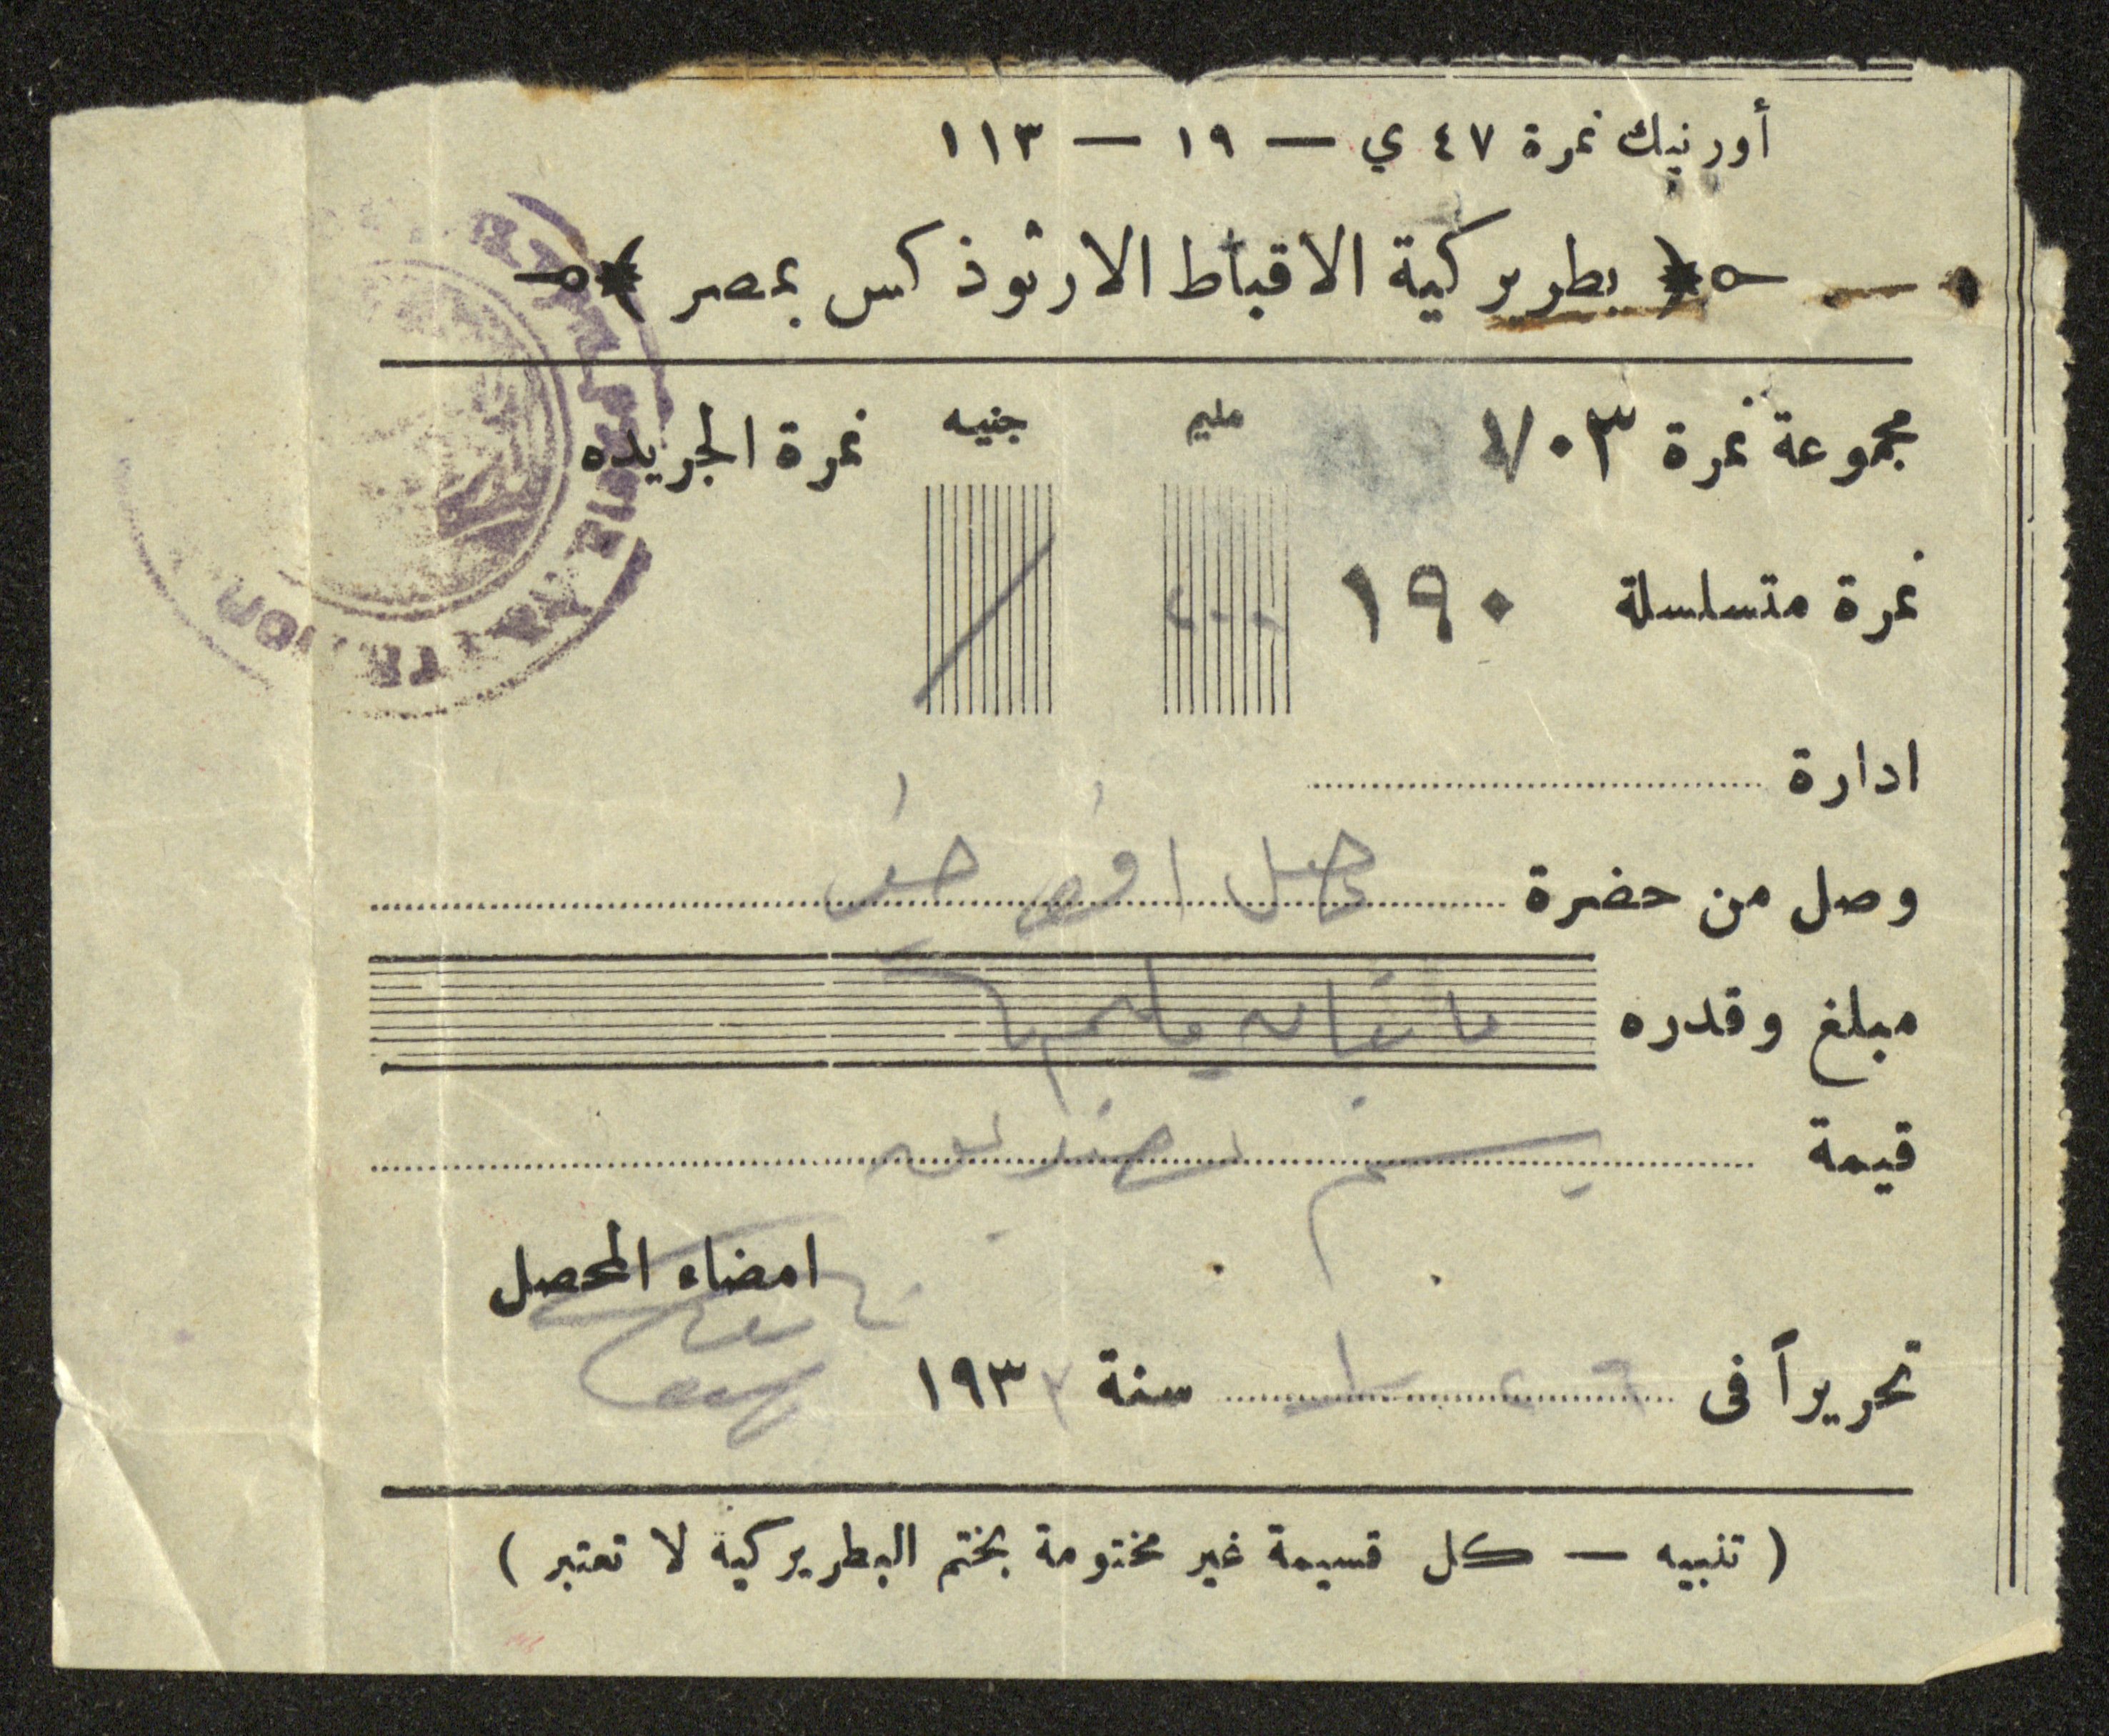 أورنيك نمرة ٤٧ ي — ١٩ — ١١٣
بطريركية الاقباط الارثوذكس بمصر
مجموعة نمرة ١٧٠٣ مليم جنيه نمرة الجريده
نمرة متسلسلة ١٩٠ ٢٠٠
ادارة
وصل من حضرة
مبلغ وقدره مائتان مليم
قيمة رسم
امضاء المحصل
تحريراً فى سنة ١٩٣٣
( تنبيه — كل قسيمة غير مختومة بختم البطريركية لا تعتبر )